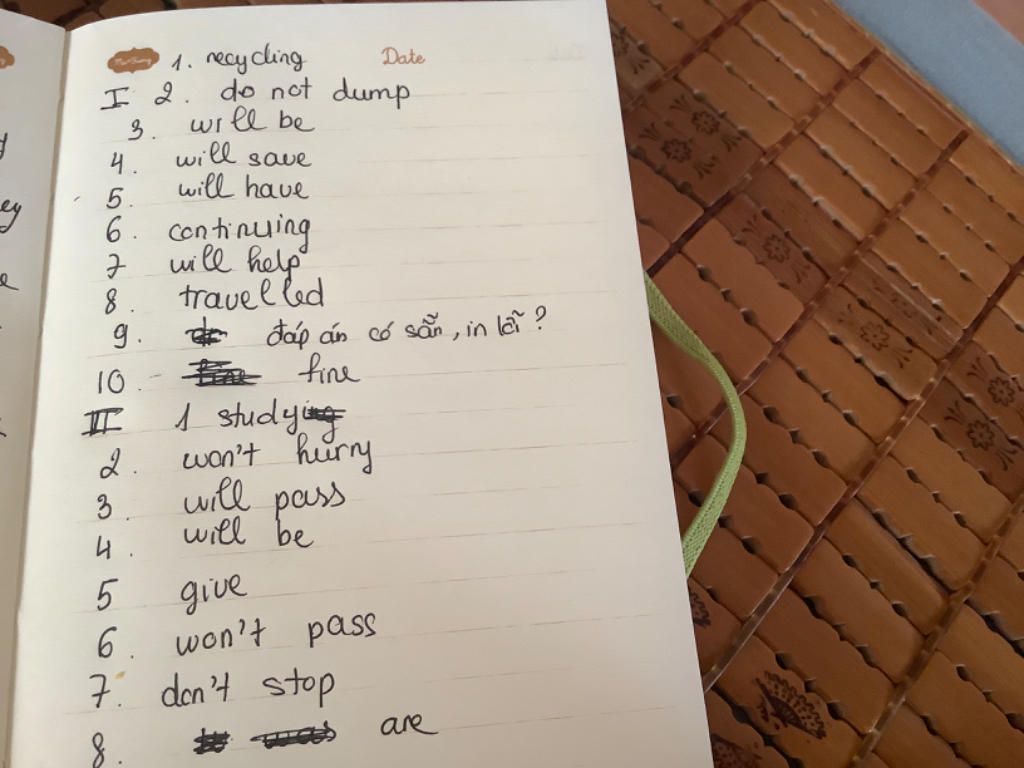 1. recycling Date
I 2. do not dump
3. will be
4. will save
5. will have
6. continuing
7 will help
8. travelled
9. đáp án có sẵn, in lỗi?
10. fine
II 1 study
2. won't hurry
3. will pass
4. will be
5 give
6. won't pass
7. don't stop
8. are